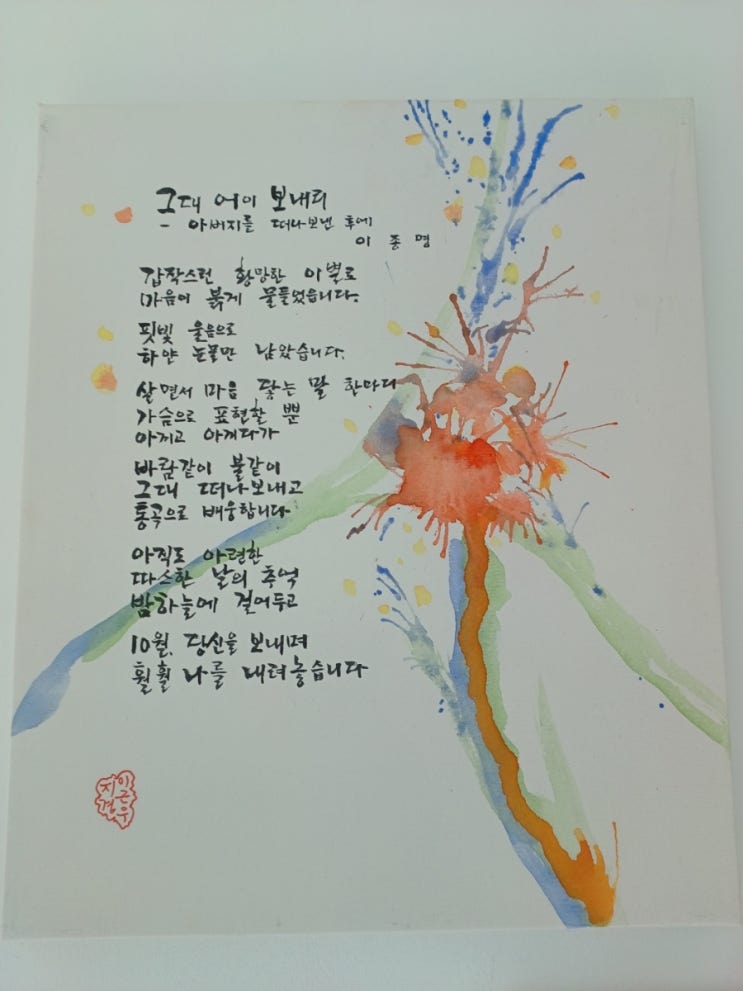 그대 어이 보내리
- 아버지를 떠나보낸 후에
이 종 명
갑작스런 황망한 이별로
마음이 붉게 물들었습니다.
핏빛 울음으로
하얀 눈물만 남았습니다.
살면서 마음 닿는 말 한마디
가슴으로 표현할 뿐
아끼고 아끼다가
바람같이 불같이
그대 떠나보내고
통곡으로 배웅합니다
아직도 아련한
따스한 날의 추억
밤하늘에 걸어두고
10월, 당신을 보내며
훨훨 나를 내려놓습니다
이근우
지경